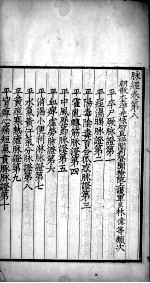 脉經卷第八
朝散大夫守光祿卿直祕閣判登聞檢院上護軍臣林億等類次
平卒尸厥脉證第一
平痓濕暍脉證第二
平陽毒陰毒百合狐惑脉證第三
平霍亂轉筋脉證第四
平中風歷節脉證第五
平血痹虛勞脉證第六
平消渴小便利淋脉證第七
平水氣黃汗氣分脉證第八
平黃疸寒熱瘧脉證第九
平胸痹心痛短氣賁豚脉證第十